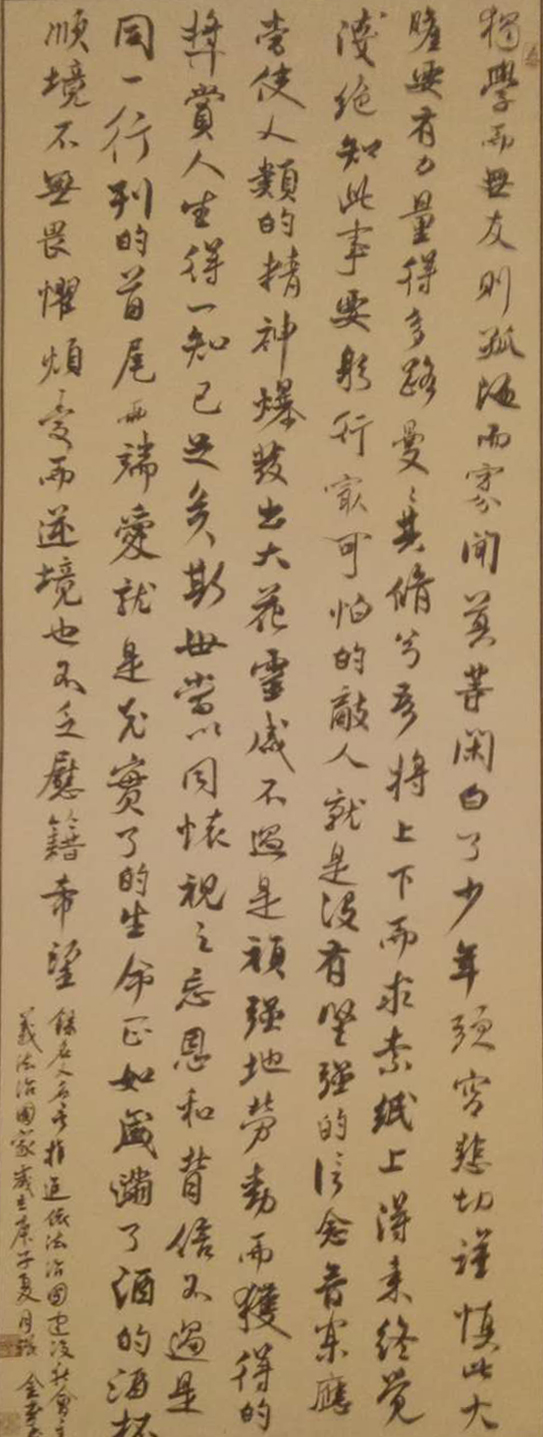 獨學而無友則孤陋而寡聞莫等閑白了少年頭空悲切謹慎比大
膽要有力量得多路曼〻其脩兮吾將上下而求索紙上得来終覺
淺絶知此事要躬行最可怕的敵人就是没有堅強的信念音樂應
當使人類的精神爆發出火花靈感不過是頑強地勞動而獲得的
獎賞人生得一知己足矣斯世當以同懷視之忘恩和背信不過是
同一行列的首尾兩端愛就是充實了的生命正如盛滿了酒的酒杯
順境不無畏懼煩憂而逆境也不乏慰籍希望
錄名人名言推進依法治國建設社會主
義法治國家歲在庚子夏月